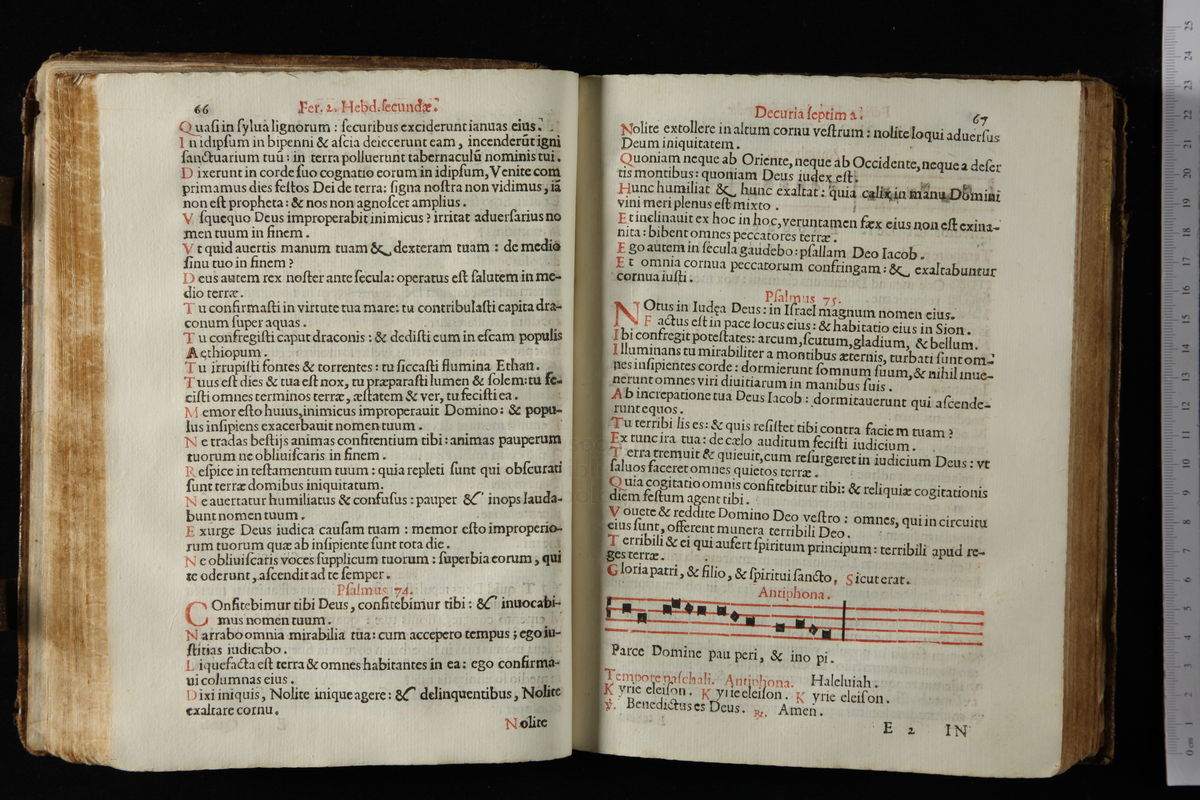 66
Fer. 2. Hebd. secundæ.
Quasi in sylua lignorum : securibus exciderunt ianuas eius.
In idipsum in bipenni & ascia deiecerunt eam, incenderũt igni
sanctuarium tuũ: in terra polluerunt tabernaculũ nominis tui.
Dixerunt in corde suo cognatio eorum in idipsum, Venite com
primamus dies festos Dei de terra: signa nostra non vidimus, iã
non est propheta: & nos non agnoscet amplius.
Vsquequo Deus improperabit inimicus? irritat aduersarius no
men tuum in finem.
Vt quid auertis manum tuam & dexteram tuam : de medio
sinu tuo in finem?
Deus autem rex noster ante secula: operatus est salutem in me-
dio terræ.
Tu confirmasti in virtute tua mare: tu contribulasti capita dra-
conum super aquas.
Tu confregisti caput draconis: & dedisti eum in escam populis
Aethiopum.
Tu irrupisti fontes & torrentes: tu siccasti flumina Ethan.
Tuus est dies & tua est nox, tu præparasti lumen & solem: tu fe-
cisti omnes terminos terræ, æstatem & ver, tu fecisti ea.
Memor esto huius, inimicus improperauit Domino: & popu-
lus insipiens exacerbauit nomen tuum.
Ne tradas bestijs animas confitentium tibi: animas pauperum
tuorum ne obliuiscaris in finem.
Respice in testamentum tuum : quia repleti sunt qui obscurati
sunt terræ domibus iniquitatum.
Ne auertatur humiliatus & confusus: pauper & inops lauda-
bunt nomen tuum.
Exurge Deus iudica causam tuam : memor esto improperio-
rum tuorum quæ ab insipiente sunt tota die.
Ne obliuiscaris voces supplicum tuorum: superbia eorum, qui
te oderunt, ascendit ad te semper.
Psalmus 74.
COnfitebimur tibi Deus, confitebimur tibi: & inuocabi-
mus nomen tuum.
Narrabo omnia mirabilia tua: cum accepero tempus; ego iu-
stitias iudicabo.
Liquefacta est terra & omnes habitantes in ea: ego confirma-
ui columnas eius.
Dixi iniquis, Nolite inique agere: & delinquentibus, Nolite
exaltare cornu.
Nolite
Decuria septima.
67
Nolite extollere in altum cornu vestrum: nolite loqui aduersus
Deum iniquitatem.
Quoniam neque ab Oriente, neque ab Occidente, neque a deser
tis montibus: quoniam Deus iudex est.
Hunc humiliat & hunc exaltat: quia calix in manu Domini
vini meri plenus est mixto.
Et inclinauit ex hoc in hoc, veruntamen fæx eius non est exina-
nita: bibent omnes peccatores terræ.
Ego autem in secula gaudebo: psallam Deo Iacob.
Et omnia cornua peccatorum confringam: & exaltabuntur
cornua iusti.
Psalmus 75.
NOtus in Iudęa Deus: in Israel magnum nomen eius.
Factus est in pace locus eius: & habitatio eius in Sion.
Ibi confregit potestates: arcum, scutum, gladium, & bellum.
Illuminans tu mirabiliter a montibus æternis, turbati sunt om-
nes insipientes corde: dormierunt somnum suum, & nihil inue-
nerunt omnes viri diuitiarum in manibus suis.
Ab increpatione tua Deus Iacob: dormitauerunt qui ascende-
runt equos.
Tu terribilis es: & quis resistet tibi contra faciem tuam?
Ex tunc ira tua: de cælo auditum fecisti iudicium.
Terra tremuit & quieuit, cum resurgeret in iudicium Deus: vt
saluos faceret omnes quietos terræ.
Quia cogitatio omnis confitebitur tibi: & reliquiæ cogitationis
diem festum agent tibi.
Vouete & reddite Domino Deo vestro: omnes, qui in circuitu
eius sunt, offerent munera terribili Deo.
Terribili & ei qui aufert spiritum principum: terribili apud re-
ges terræ.
Gloria patri, & filio, & spiritui sancto, Sicut erat.
Antiphona.
Parce Domine pau peri, & ino pi.
Tempore paschali. Antiphona. Haleluiah.
Kyrie eleison. Kyrie eleison. Kyrie eleison.
℣. Benedictus es Deus. ℟. Amen.
E 2 IN